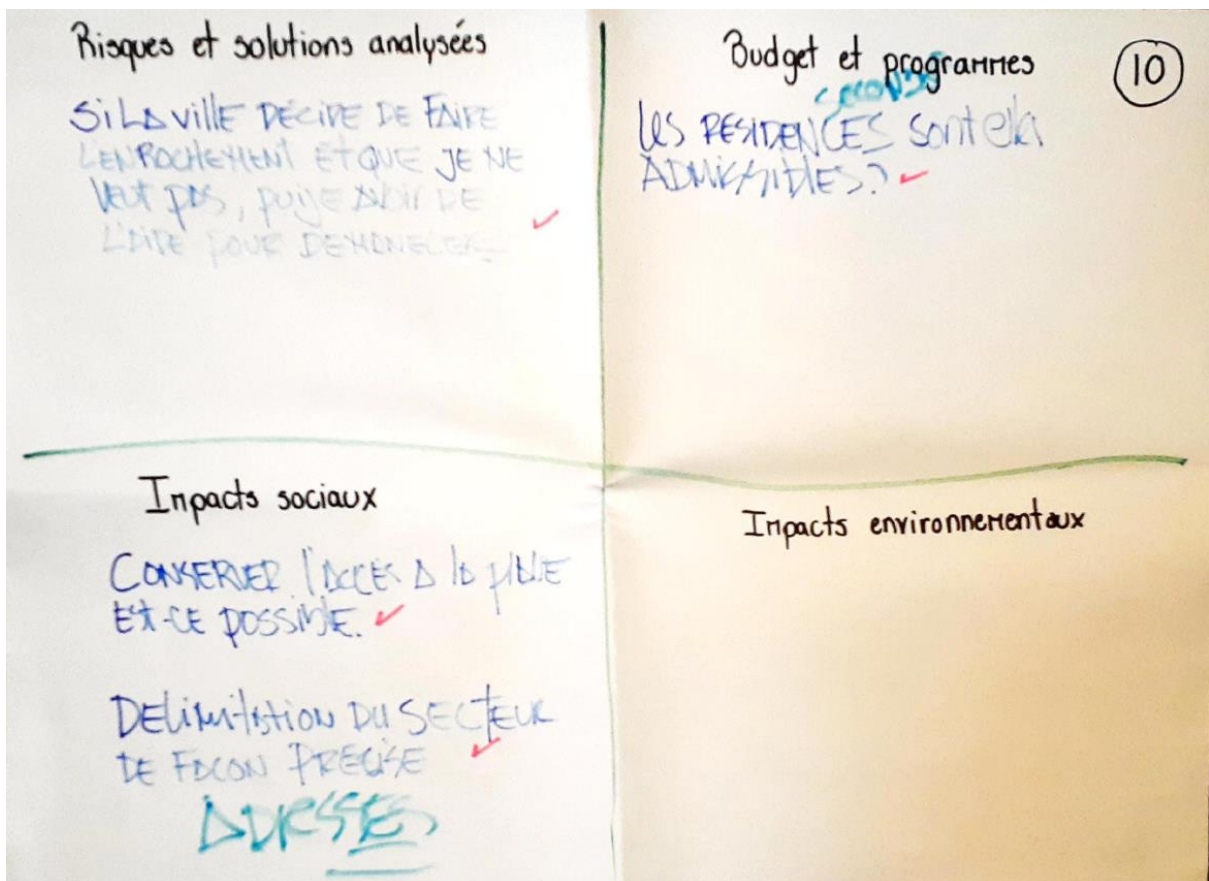 Risques et solutions analysées
Si LA VILLE DÉCIDE DE FAIRE
L'ENROCHEMENT ET QUE JE NE
VEUT PAS, PUIJE AVOIR DE
L'AIDE POUR DEMENAGER
Budget et programmes
10
SECONDES
LES RESIDENCES sont elle
ADMISSIBLES?
Impacts sociaux
CONSERVER l'ACCÈS À la plage
EST-CE POSSIBLE.
DELIMITATION DU SECTEUR
DE FACON PRÉCISE
ADRESSES
Impacts environnementaux